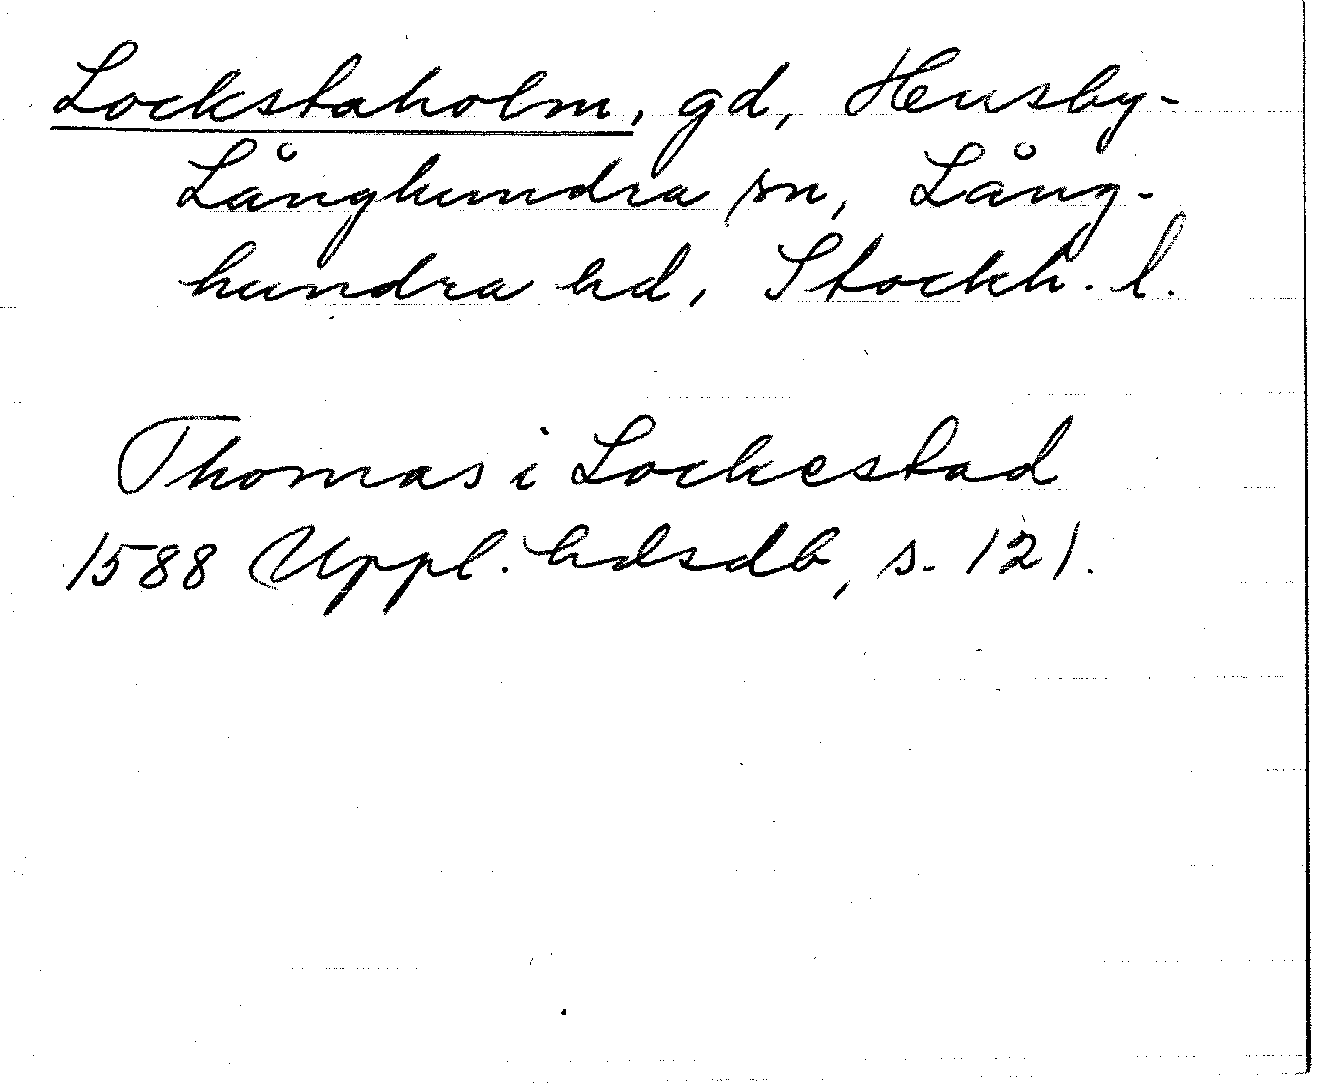 Lockstaholm, gd, Husby-
Långhundra sn, Lång-
hundra hd, Stockh. l.
Thomas i Lockestad
1588 Uppl. hdsdb, s. 121.